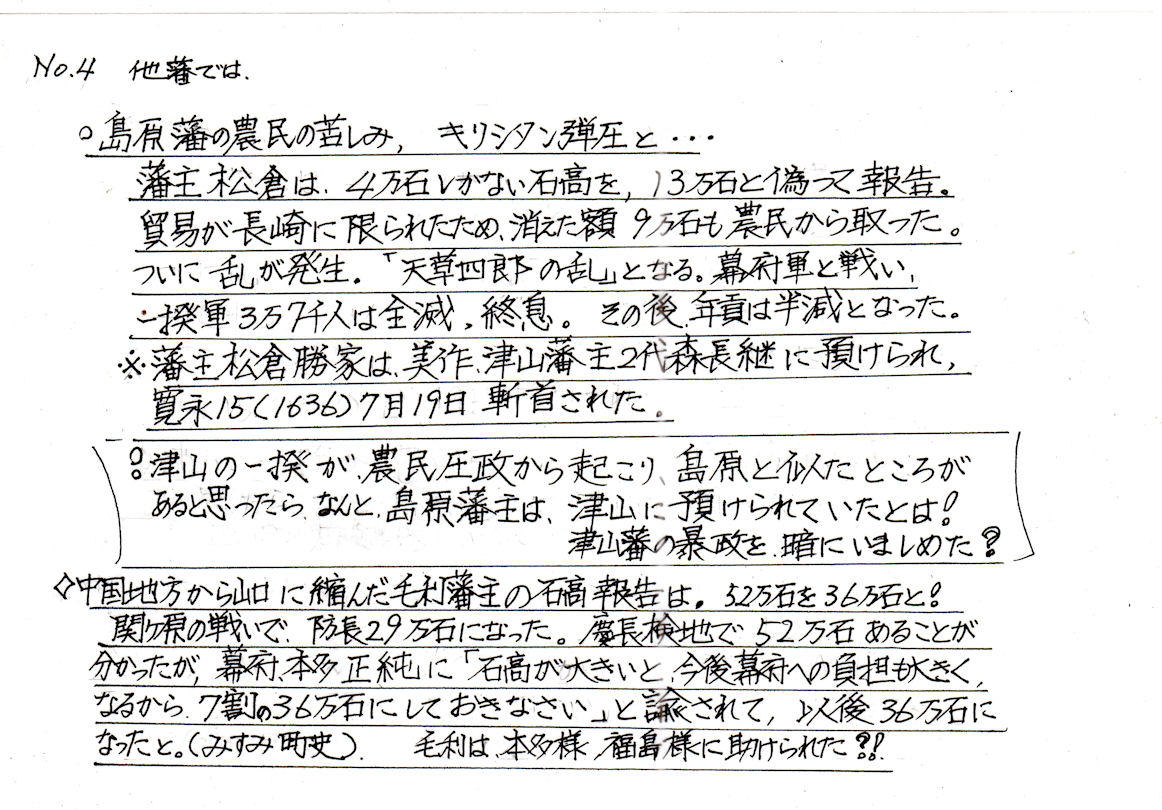 No.4 他藩では、
○島原藩の農民の苦しみ, キリシタン弾圧と・・・
藩主松倉は、4万石しかない石高を, 13万石と偽って報告。
貿易が長崎に限られたため、消えた額 9万石も農民から取った。
ついに乱が発生。「天草四郎の乱」となる。幕府軍と戦い,
一揆軍3万7千人は全滅。終息。 その後、年貢は半減となった。
※藩主松倉勝家は、美作、津山藩主2代森長継に預けられ,
寛永15(1636)7月19日 斬首された。
津山の一揆が、農民圧政から起こり、島原と似たところが
あると思ったら、なんと、島原藩主は、津山に預けられていたとは!
津山藩の暴政を、暗にいましめた?
◇中国地方から山口に縮んだ毛利藩主の石高報告は。52万石を36万石と!
関ヶ原の戦いで、防長29万石になった。慶長検地で52万石あることが
分かったが, 幕府、本多正純に「石高が大きいと、今後幕府への負担も大きく,
なるから、7割の36万石にしておきなさい」と諭されて, 以後36万石に
なったと。(みすみ町史) 毛利は、本多様、福島様に助けられた?!